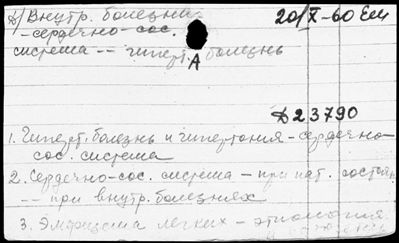 б) Внутр. болезни 20/X-60 Ем
- сердечно-сос.
система -- гиперт. болезнь
А
Д23790
1. Гиперт. болезнь и гипертония - сердечно-
сос. система
2. Сердечно-сос. система - при пат. состоян.
-- при внутр. болезнях
3. Эмфизема легких - этиология.